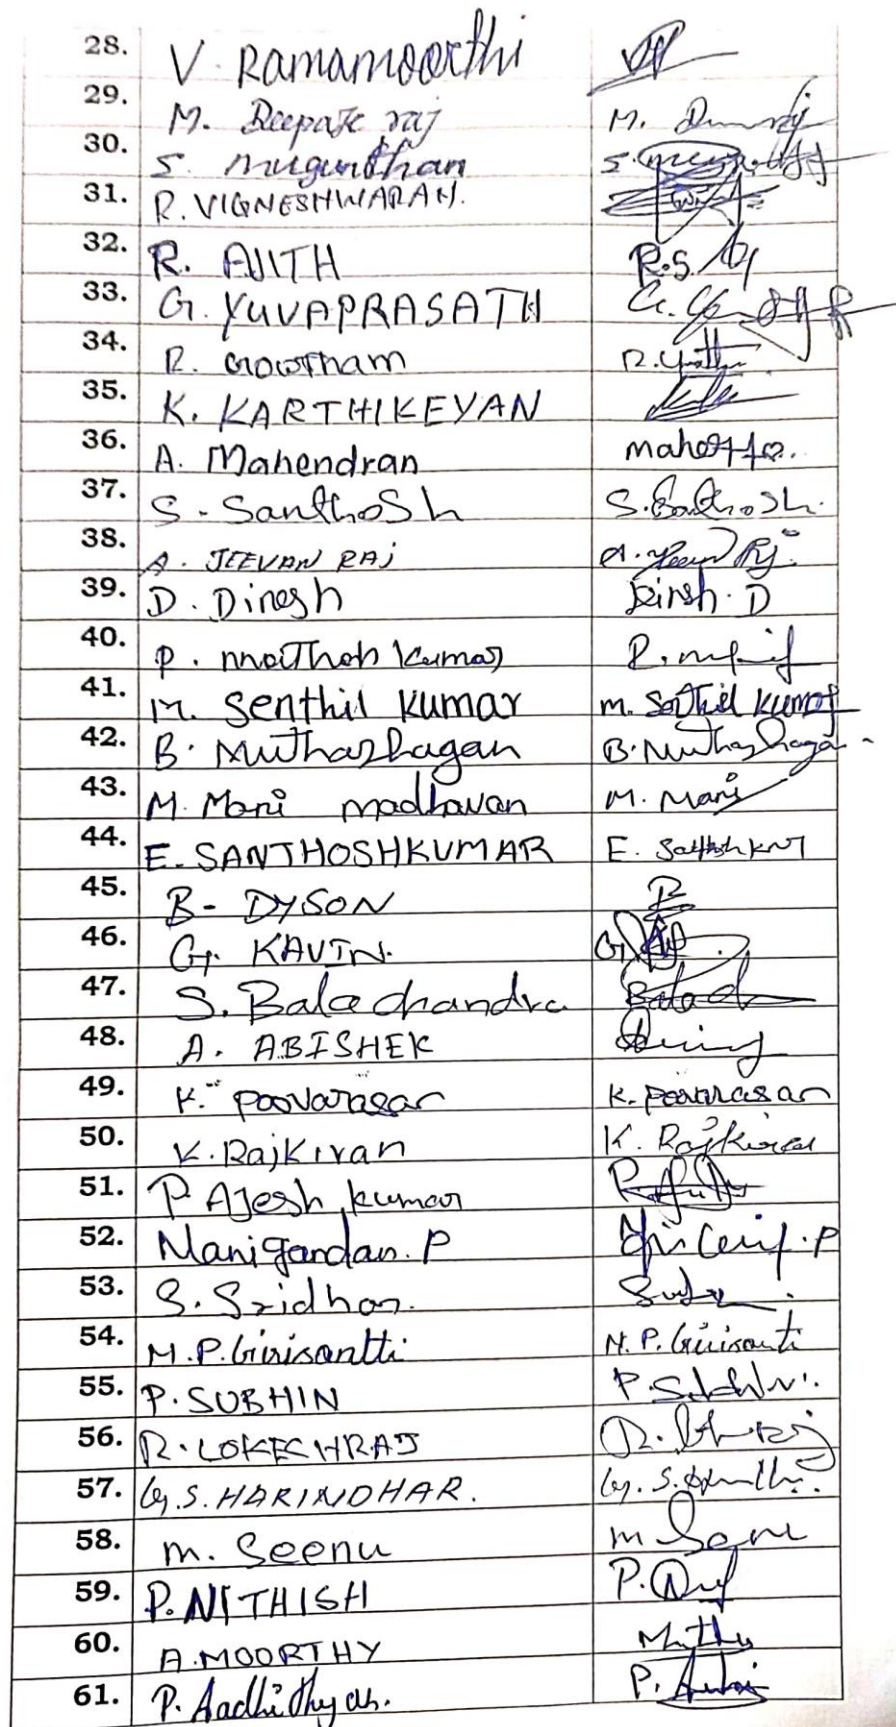 28. V. Ramamoorthi
29. M. Deepak raj M.
30. S. mugunthan S.
31. R. VIGNESHWARAN.
32. R. AJITH R.S.
33. G. YUVAPRASATH G.
34. R. Gowtham R.
35. K. KARTHIKEYAN
36. A. Mahendran
37. S. Santhosh S. Santhosh.
38. A. JEEVAN RAj A. Jeevan Rj.
39. D. Dinesh Dinsh. D
40. P. Kumar
41. M. Senthil kumar m. Senthil kumar
42. B. Muthazhagan B. Muthazhagan
43. M. Mani madhavan M. Mani
44. E. SANTHOSHKUMAR E.
45. B- DYSON B
46. G. KAVIN. G.
47. S. Balachandra Balad
48. A. ABISHEK
49. K. Poovarasan K. Poovarasan
50. K. RajKiran K. RajKiran
51. P. Ajesh kumar
52. Manigandan. P P
53. S. Sridhar.
54. M.P. Girisanth M.P. Girisanth
55. P. SUBHIN P.
56. R. LOKECHRAJ R.
57. G.S. HARINDHAR. G.S.
58. m. Seenu m
59. P. NITHISH P.
60. A. MOORTHY
61. P. Aadhithyan. P.